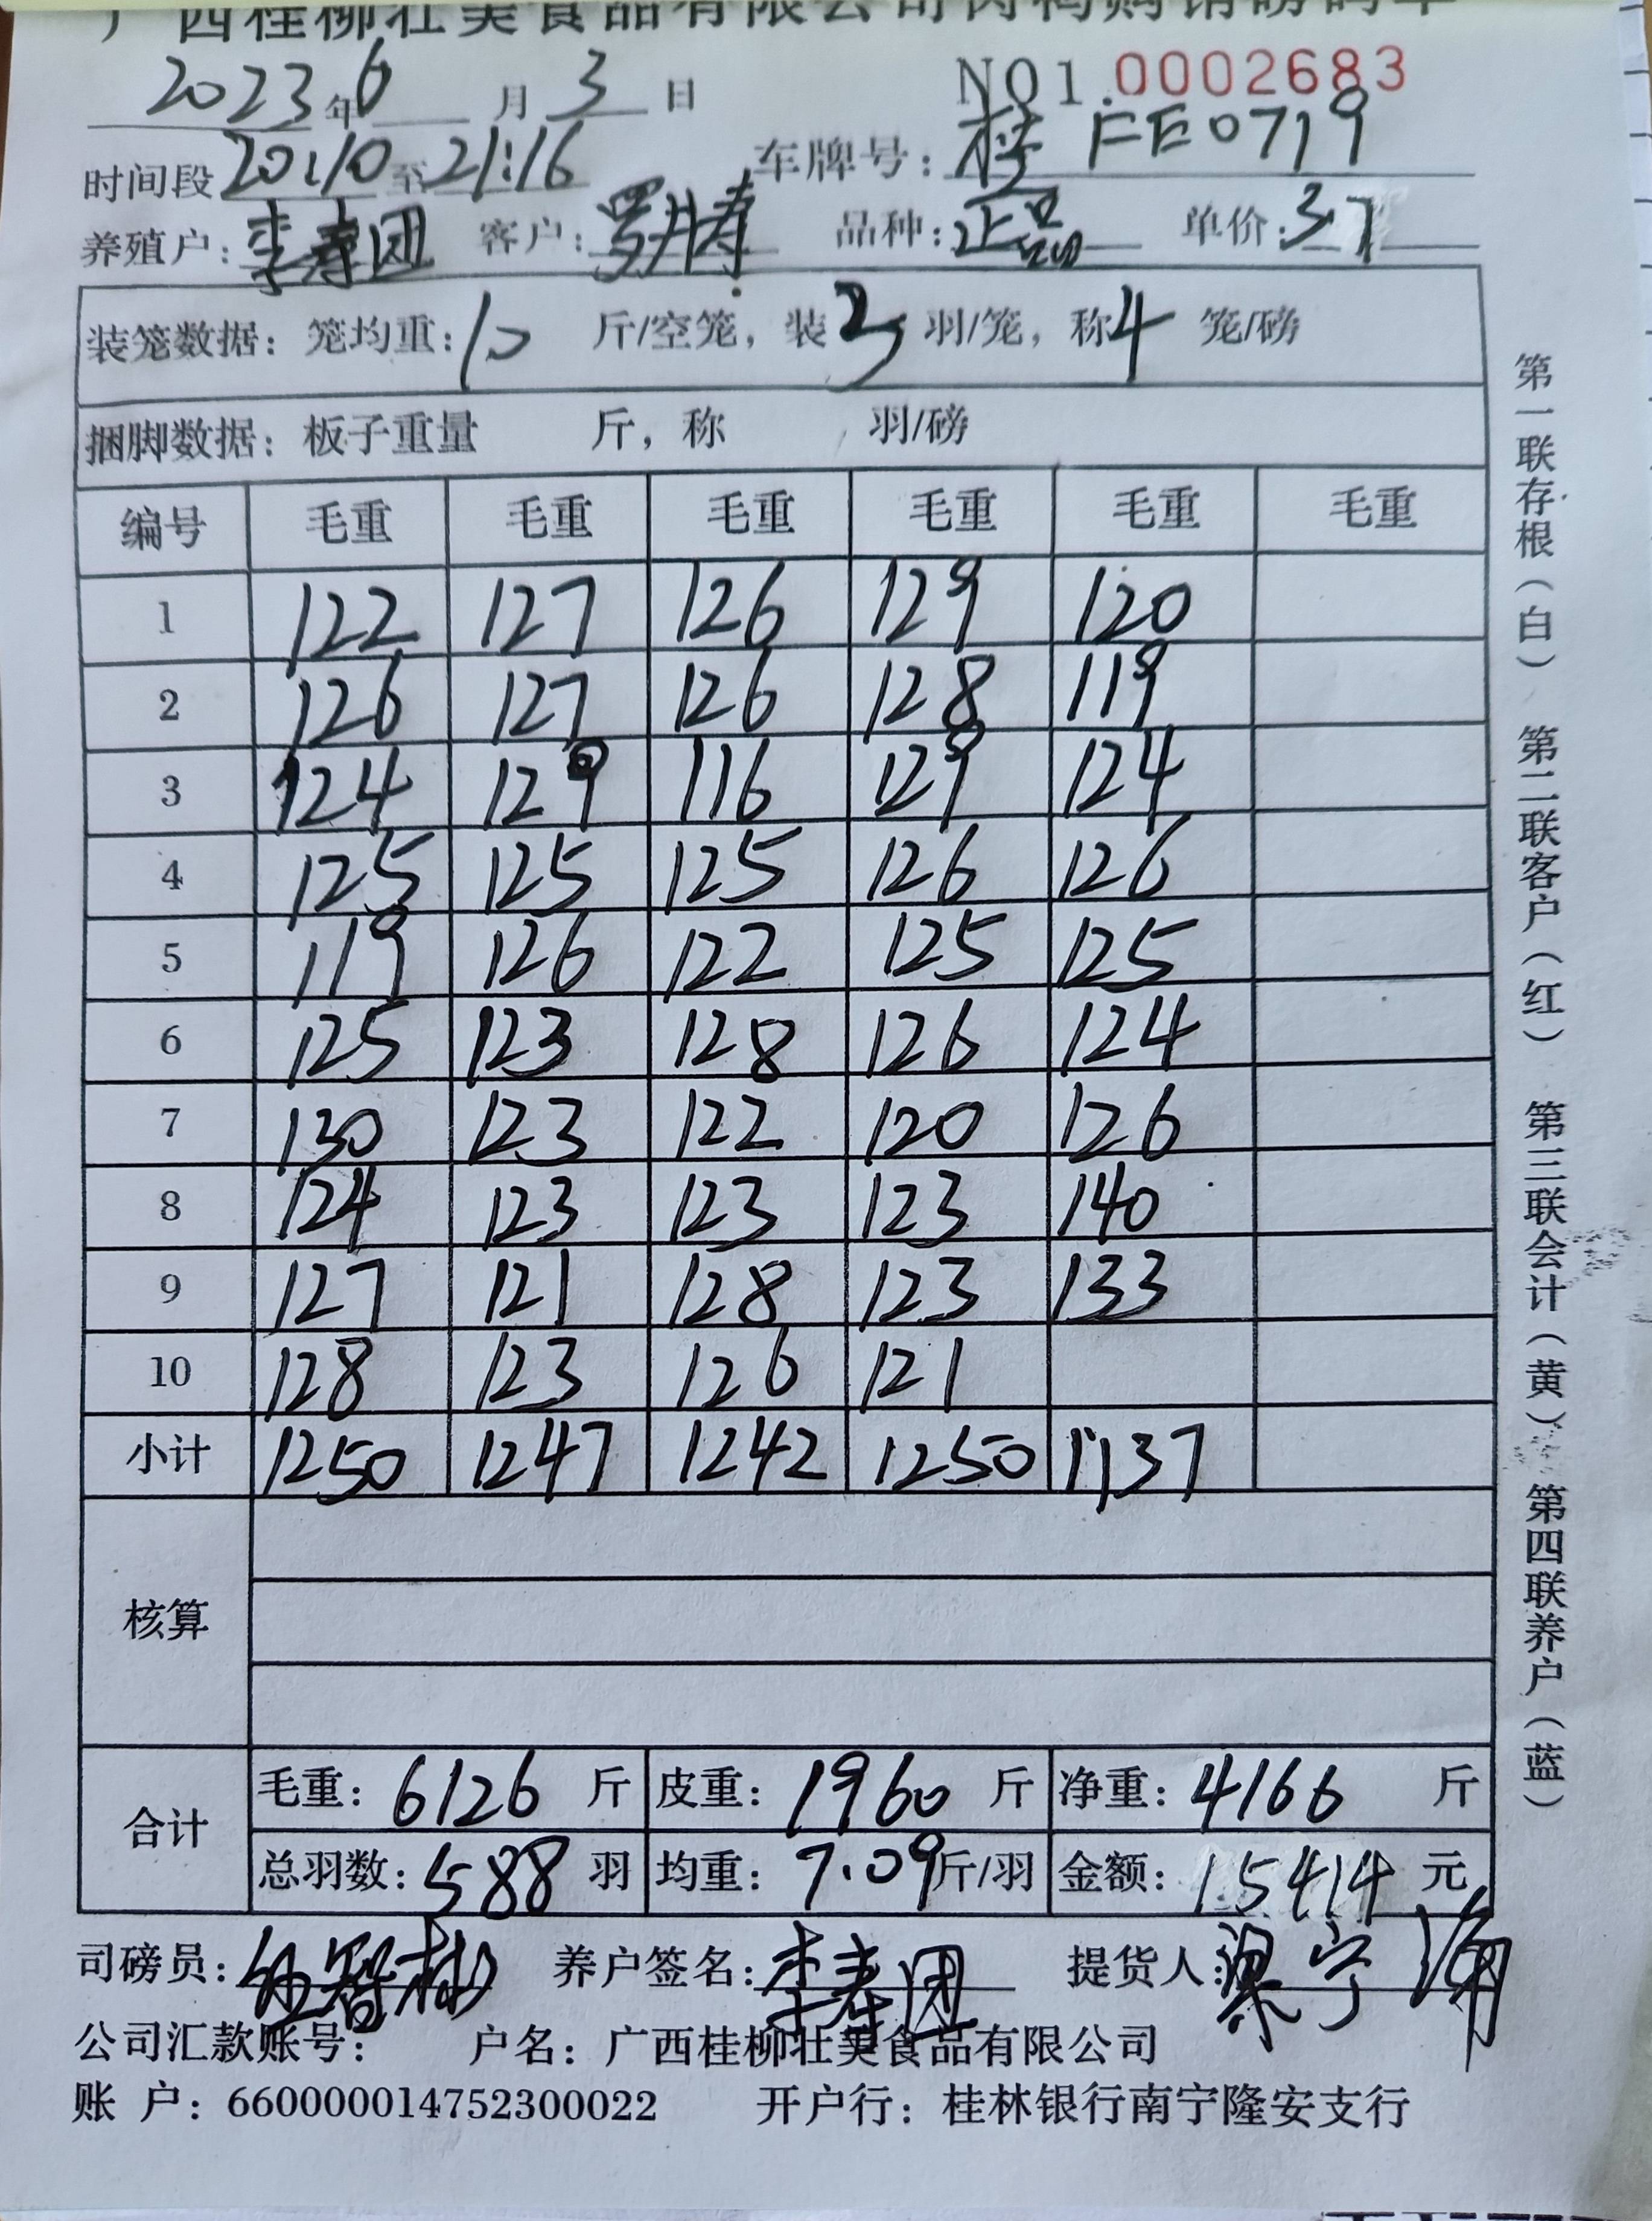 广西桂柳壮美食品有限公司肉鸭购销磅码单
2023年6月3日 NO1.0002683
时间段20:10至21:16 车牌号:桂FE0719
养殖户:李寿团 客户: 品种:正品 单价:3.7
装笼数据:笼均重:10 斤/空笼,装3羽/笼,称4 笼/磅
捆脚数据:板子重量 斤,称 羽/磅
编号 毛重 毛重 毛重 毛重 毛重 毛重
1 122 127 126 129 120
2 126 127 126 128 119
3 124 129 116 129 124
4 125 125 125 126 126
5 119 126 122 125 125
6 125 123 128 126 124
7 130 123 122 120 126
8 124 123 123 123 140
9 127 121 128 123 133
10 128 123 126 121
小计 1250 1247 1242 1250 1137
核算
合计 毛重:6126斤 皮重:1960斤 净重:4166斤
总羽数:588羽 均重:7.09斤/羽 金额:15414元
司磅员: 养户签名:李寿团 提货人:梁宁海
公司汇款账号: 户名:广西桂柳壮美食品有限公司
账 户:660000014752300022 开户行:桂林银行南宁隆安支行
第一联存根(白) 第二联客户(红) 第三联会计(黄) 第四联养户(蓝)